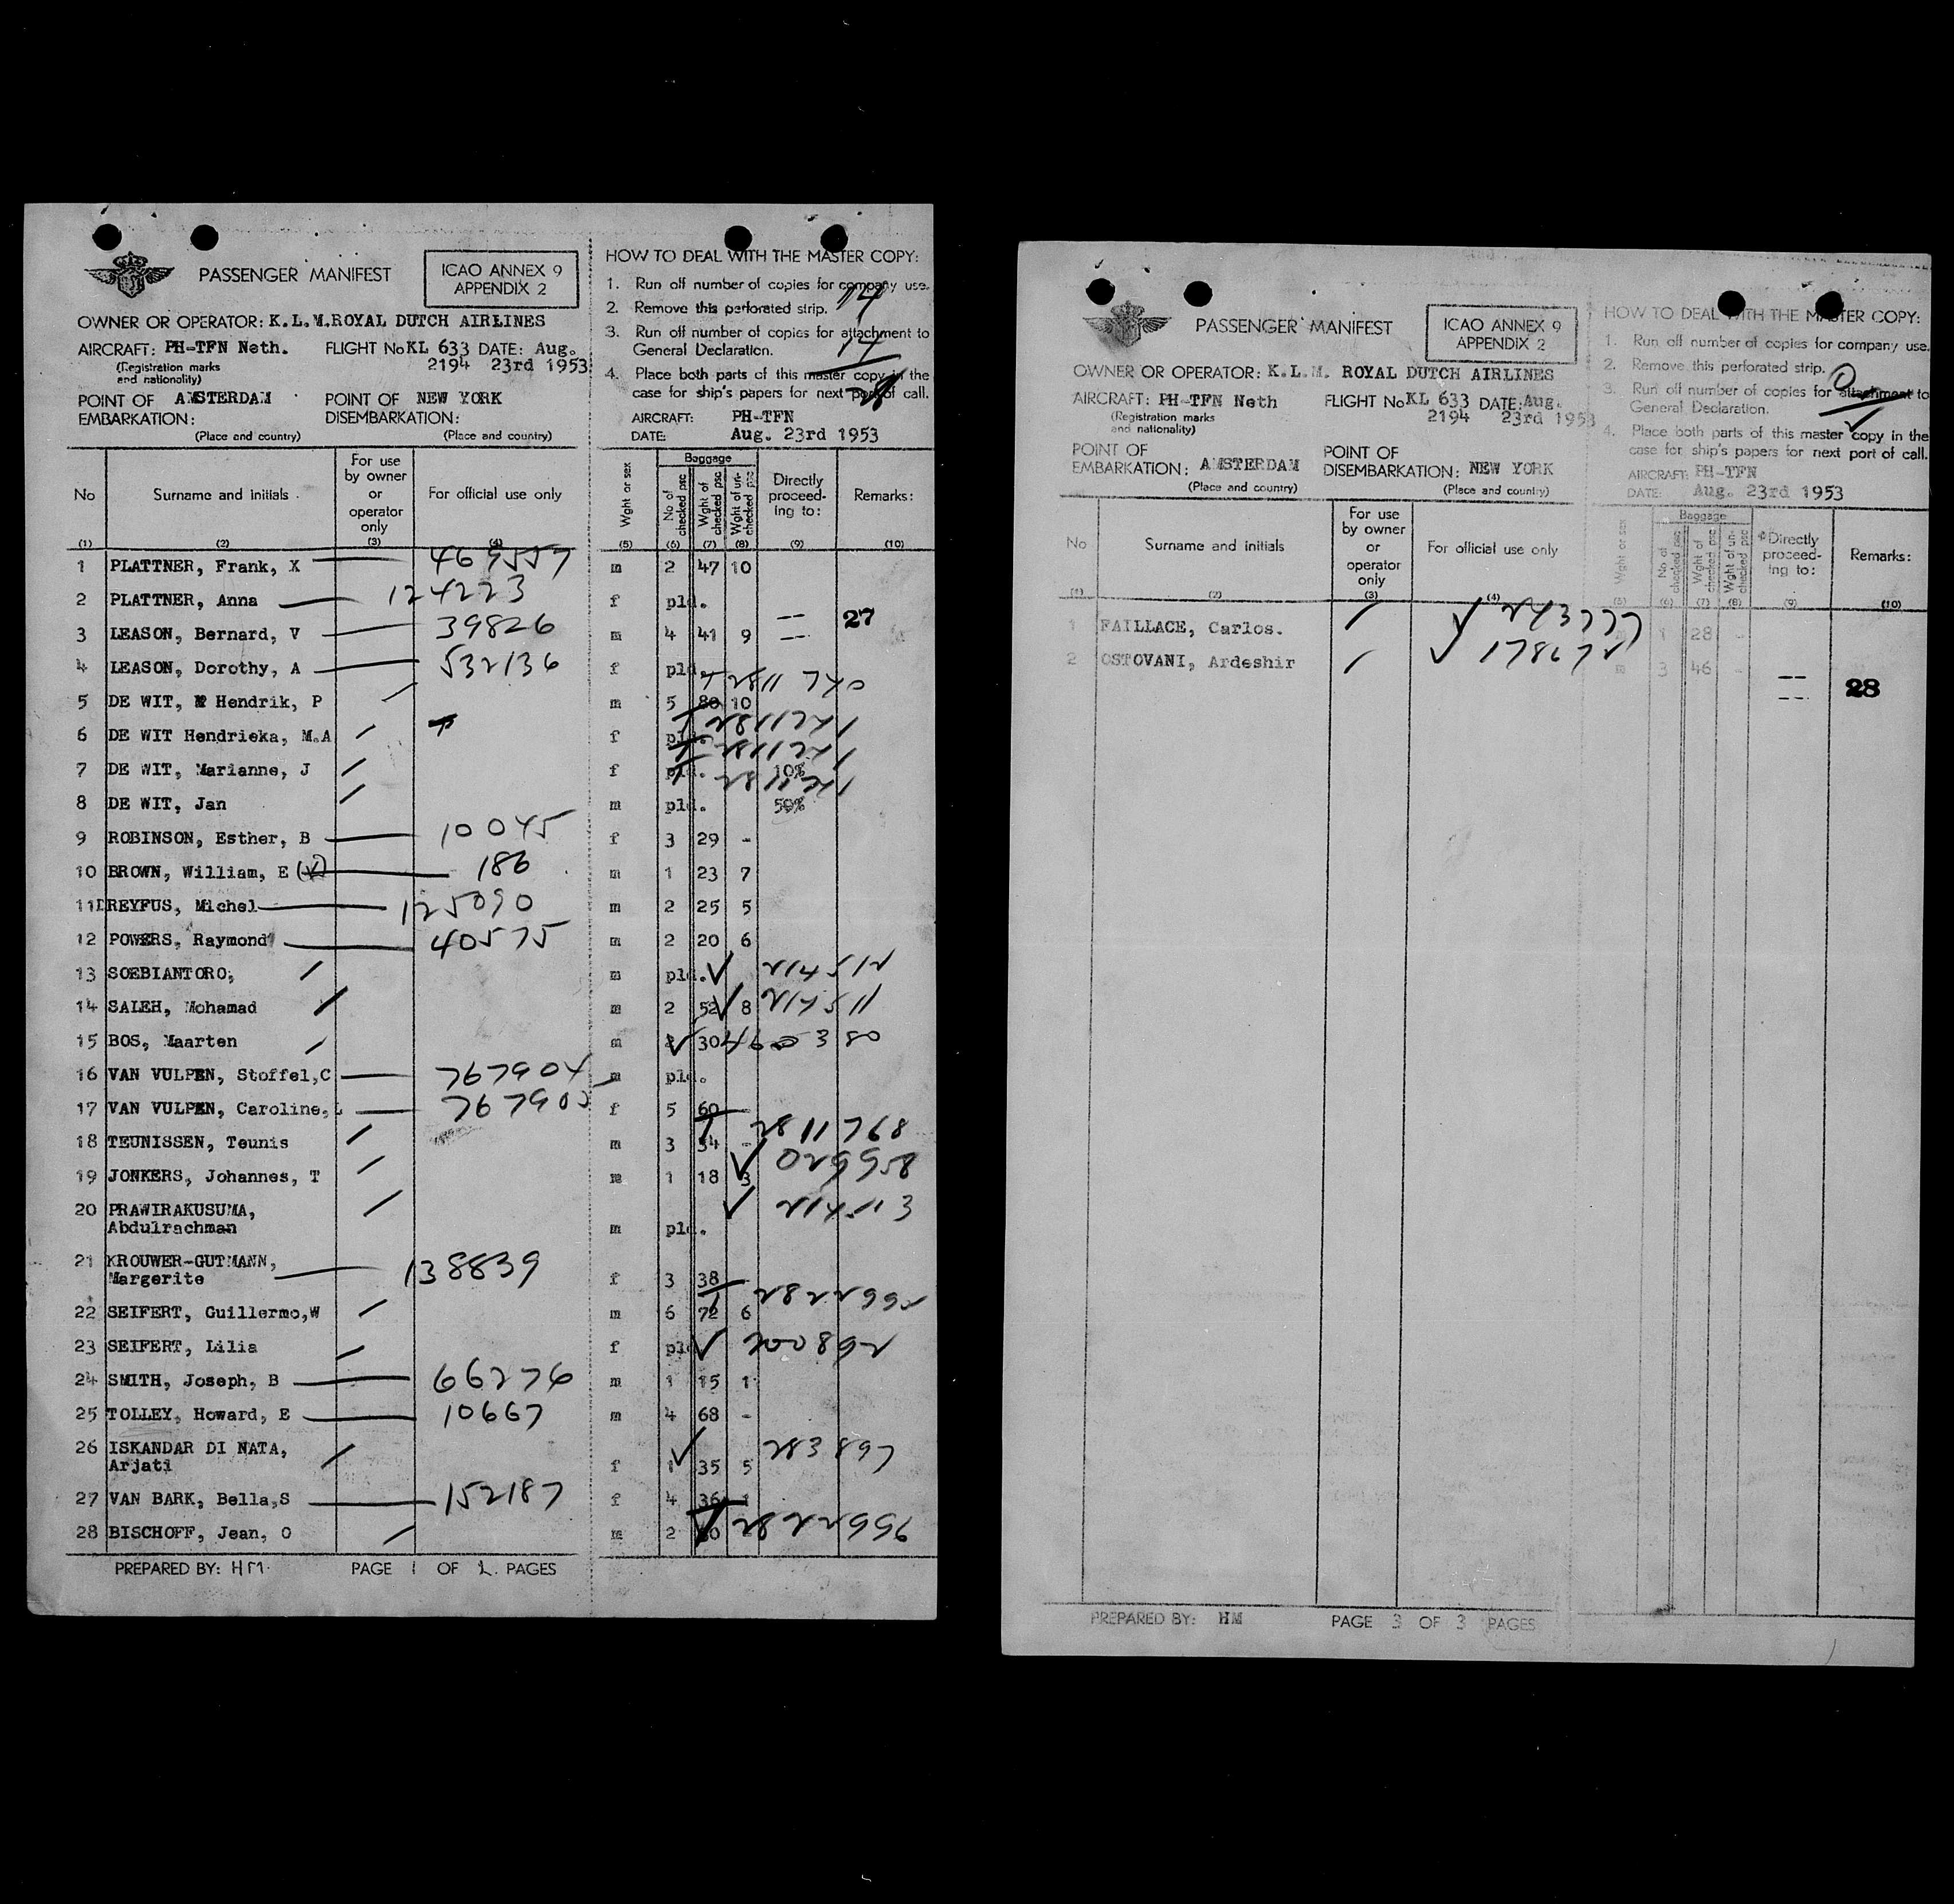 PASSENGER MANIFEST
ICAO ANNEX 9
APPENDIX 2
OWNER OR OPERATOR: K.L.M.ROYAL DUTCH AIRLINES
AIRCRAFT: PH-TFN Neth. FLIGHT No KL 633 DATE: Aug.
(Registration marks and nationality) 2194 23rd 1953
POINT OF EMBARKATION: AMSTERDAM POINT OF DISEMBARKATION: NEW YORK
(Place and country) (Place and country)
HOW TO DEAL WITH THE MASTER COPY:
1. Run off number of copies for company use.
2. Remove this perforated strip.
3. Run off number of copies for attachment to
General Declaration.
4. Place both parts of this master copy in the
case for ship's papers for next port of call.
14
14
28
AIRCRAFT: PH-TFN
DATE: Aug. 23rd 1953
No Surname and initials For use by owner or operator only For official use only Wght or sex Baggage No of checked psc Wght of checked psc Wght of un-checked psc Directly proceed-ing to: Remarks:
(1) (2) (3) (4) (5) (6) (7) (8) (9) (10)
1 PLATTNER, Frank, X 469557 m 2 47 10
2 PLATTNER, Anna 124223 f pld.
-- 27
3 LEASON, Bernard, V 39826 m 4 41 9 --
4 LEASON, Dorothy, A 532136 f pld.
5 DE WIT, Hendrik, P m 5 80 10
6 DE WIT Hendrieka, M.A f pld.
7 DE WIT, Marianne, J f pld. 10%
8 DE WIT, Jan m pld. 50%
9 ROBINSON, Esther, B 10045 f 3 29 -
10 BROWN, William, E (V) 186 m 1 23 7
11 DREYFUS, Michel 125090 m 2 25 5
12 POWERS, Raymond 40575 m 2 20 6
13 SOEBIANTORO, m pld.
14 SALEH, Mohamad m 2 52 8
15 BOS, Maarten m 2 30
16 VAN VULPEN, Stoffel,C 767904 m pld.
17 VAN VULPEN, Caroline,L 767905 f 5 60 -
18 TEUNISSEN, Teunis m 3 54 -
19 JONKERS, Johannes, T m 1 18 3
20 PRAWIRAKUSUMA,
Abdulrachman m pld.
21 KROUWER-GUTMANN,
Margerite 138839 f 3 38 -
22 SEIFERT, Guillermo,W m 6 72 6
23 SEIFERT, Lilia f pld
24 SMITH, Joseph, B 66276 m 1 15 1
25 TOLLEY, Howard, E 10667 m 4 68 -
26 ISKANDAR DI NATA,
Arjati f 1 35 5
27 VAN BARK, Bella,S 152187 f 4 36 1
28 BISCHOFF, Jean, O m 2
PREPARED BY: HM. PAGE 1 OF 2. PAGES
PASSENGER MANIFEST
ICAO ANNEX 9
APPENDIX 2
OWNER OR OPERATOR: K.L.M. ROYAL DUTCH AIRLINES
AIRCRAFT: PH-TFN Neth FLIGHT No KL 633 DATE: Aug.
(Registration marks and nationality) 2194 23rd 1953
POINT OF EMBARKATION: AMSTERDAM POINT OF DISEMBARKATION: NEW YORK
(Place and country) (Place and country)
HOW TO DEAL WITH THE MASTER COPY:
1. Run off number of copies for company use.
2. Remove this perforated strip.
3. Run off number of copies for attachment to
General Declaration.
4. Place both parts of this master copy in the
case for ship's papers for next port of call.
AIRCRAFT: PH-TFN
DATE: Aug. 23rd 1953
No Surname and initials For use by owner or operator only For official use only Wght or sex Baggage No of checked psc Wght of checked psc Wght of un-checked psc Directly proceed-ing to: Remarks:
(1) (2) (3) (4) (5) (6) (7) (8) (9) (10)
1 FAILLACE, Carlos. m 1 28 -
2 OSTOVANI, Ardeshir m 3 46 - --
-- 28
PREPARED BY: HM PAGE 3 OF 3 PAGES